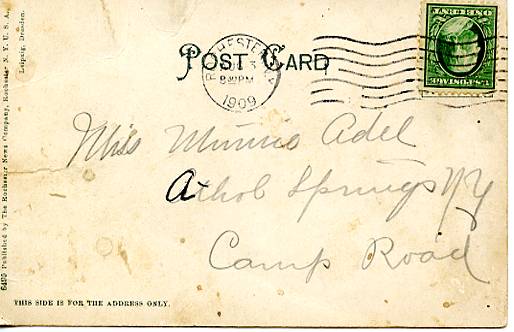 POST CARD
ROCHESTER, N.Y.
8 30 PM
1909
U.S. POSTAGE
ONE CENT
Miss Minnie Adel
Athol Springs NY
Camp Road
THIS SIDE IS FOR THE ADDRESS ONLY.
6495 Published by The Rochester News Company, Rochester N. Y. U. S. A.
Leipzig, Dresden.